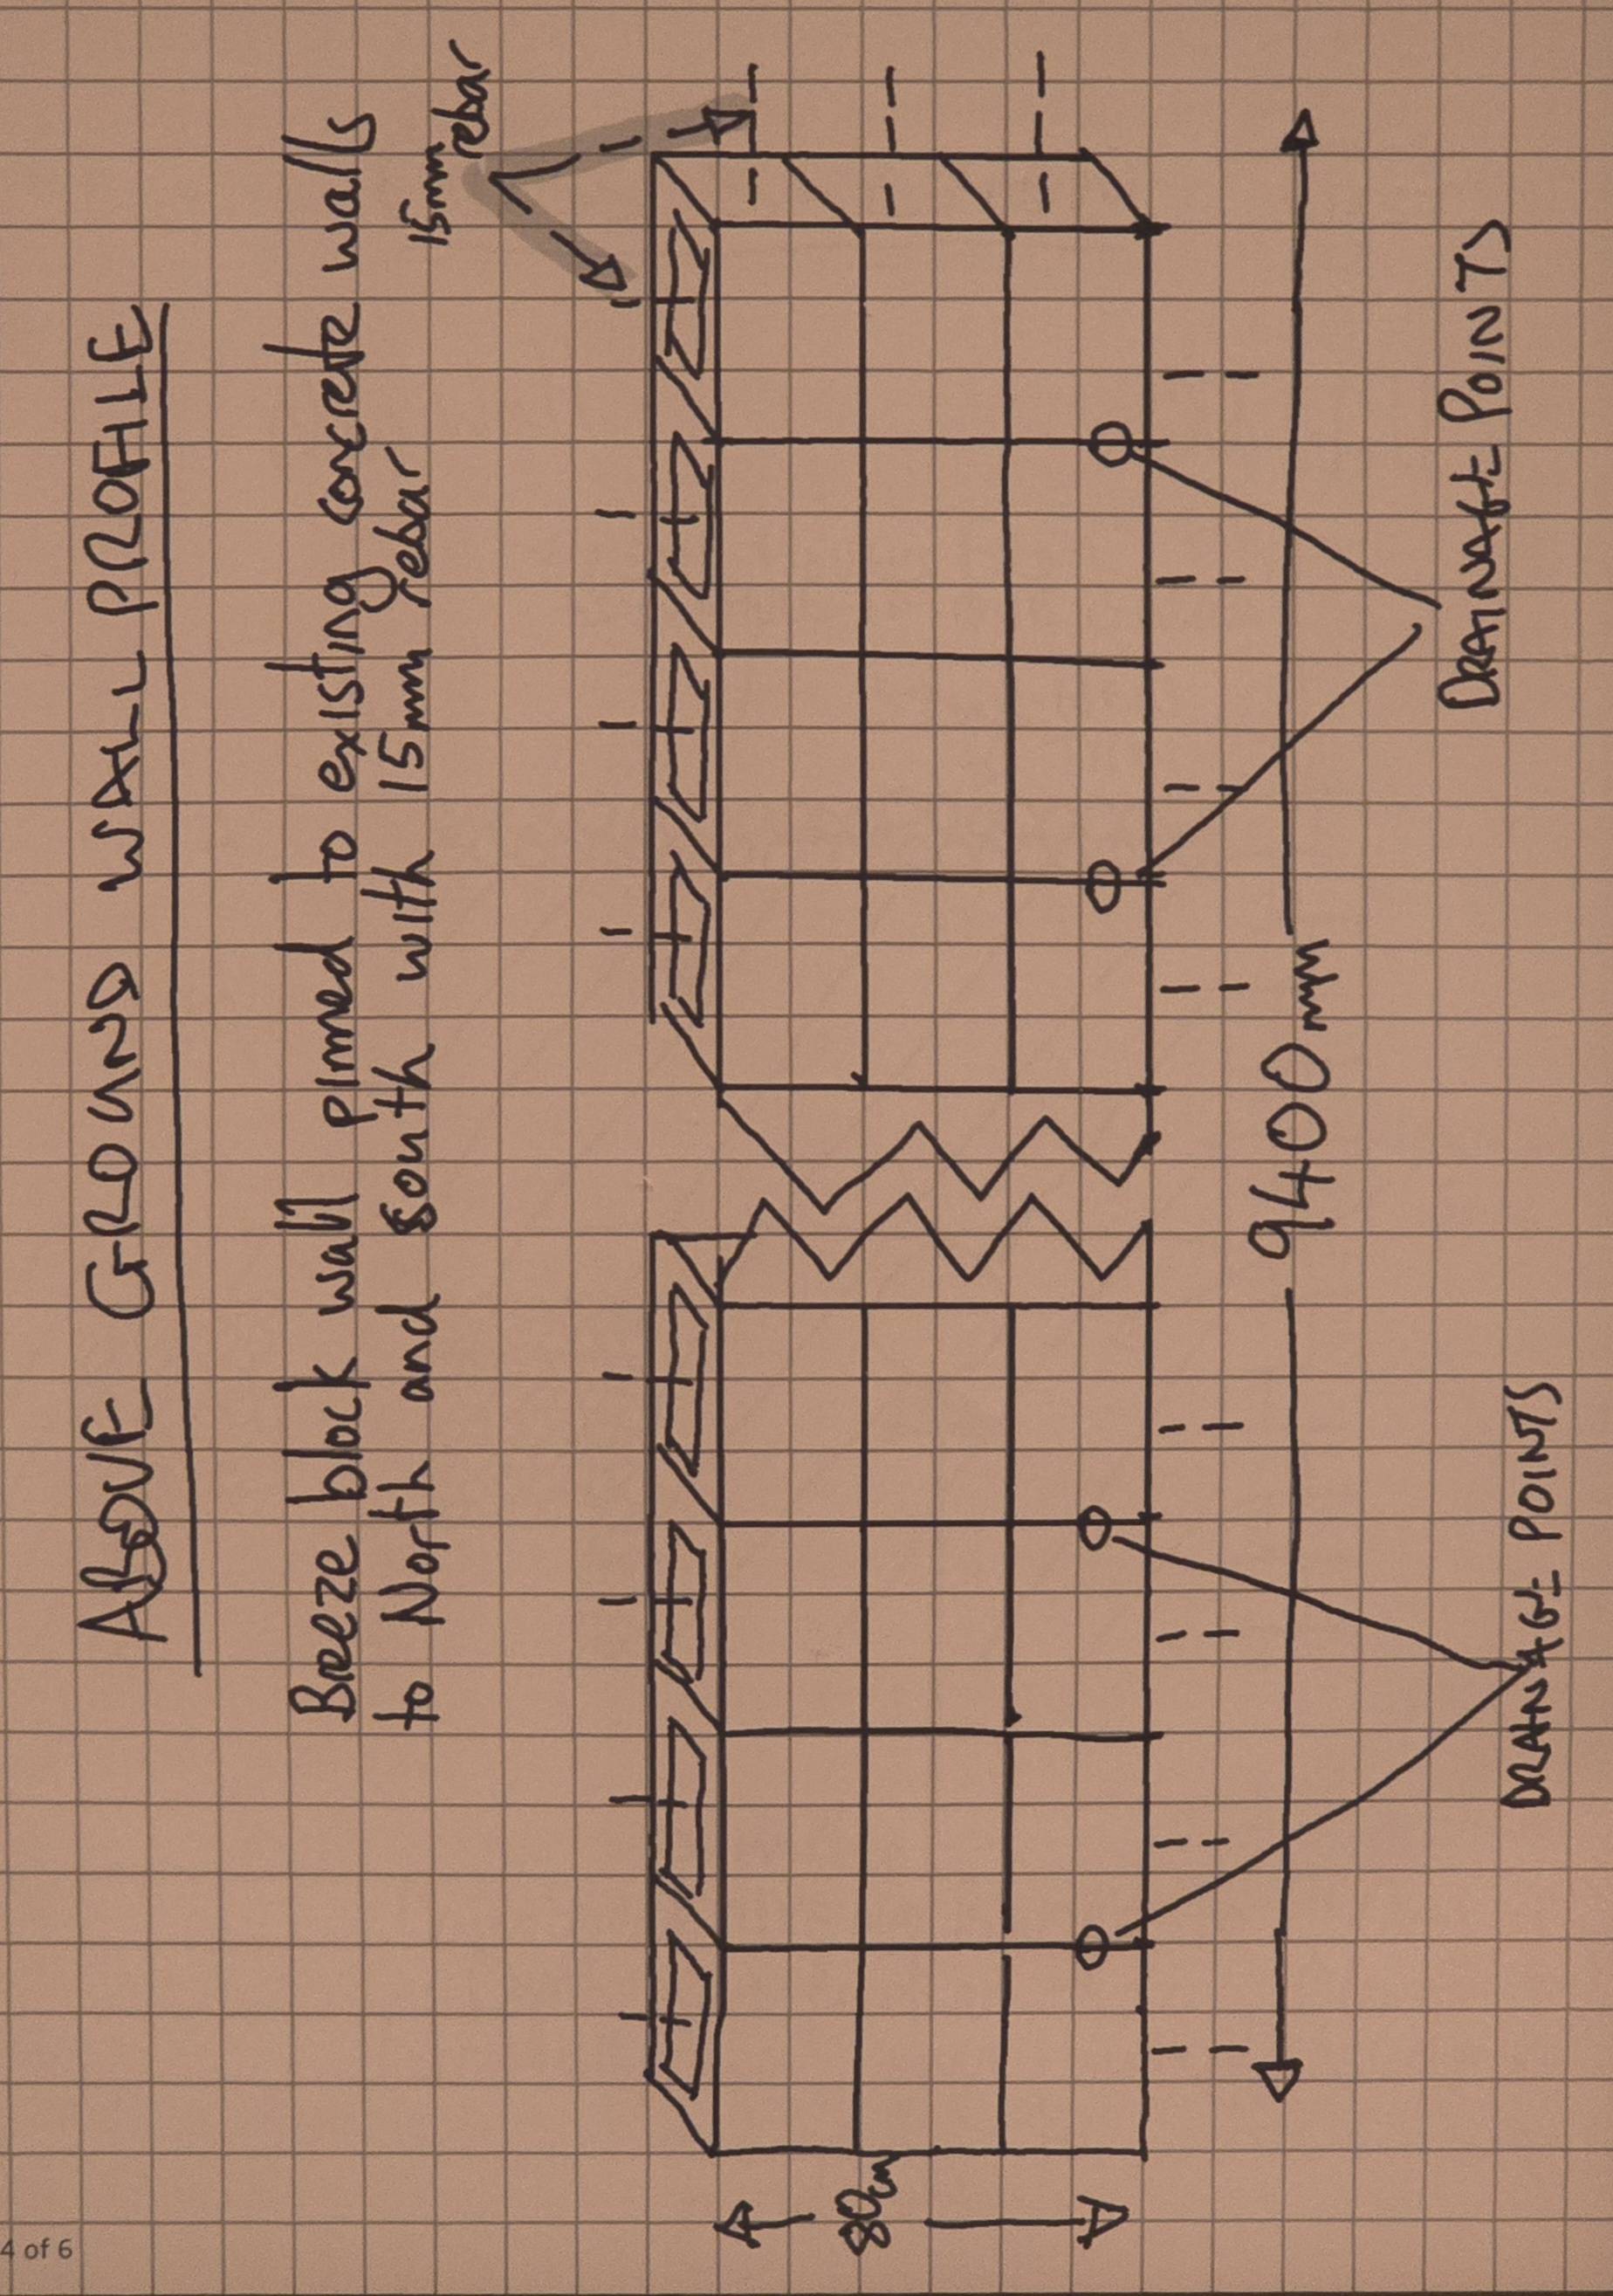 ABOVE GROUND WALL PROFILE
Breeze block wall pinned to existing concrete walls
to North and South with 15mm rebar
15mm
rebar
80cm
9400mm
DRAINAGE POINTS
DRAINAGE POINTS
4 of 6